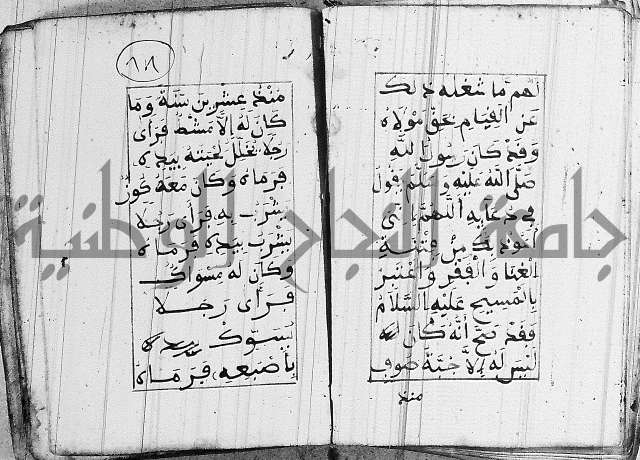 لهم ما شغله ذلك
عن القيام بحق مولاه
وقد كان رسول الله
صلى الله عليه وسلم يقول
في دعايه اللهم اني
اعوذ بك من فتنة
الغنا والفقر واعتبر
بالمسيح عليه السلام
فقد صح أنه كان
ليس له إلا جبة صوف
منذ
منذ عشرين سنة وما
كان له إلا مشط فرأى
رجلا يخلل لحيته بيده
فرماه وكان معه كوز
يشرب به فرأى رجلا
يشرب بيده فرماه
وكان له مسواك
فرأى رجلا
يتسوك بيده
بأصبعه فرماه
جامعة النجاح الوطنية